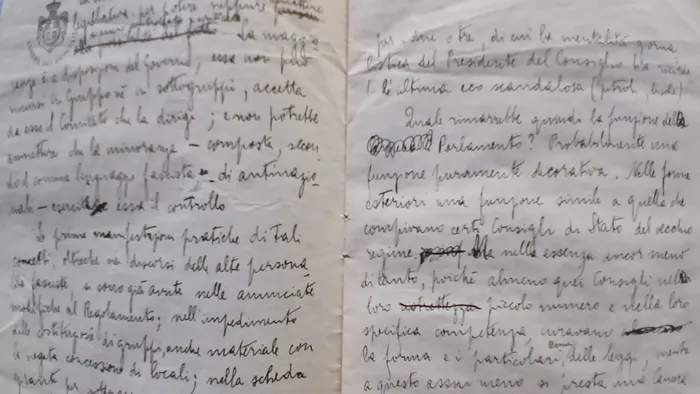 legislatura, per potere neppure
La maggio
ranza è a disposizione del Governo; essa non può
in Gruppo né in sottogruppi, accetta
da esso il Comitato che la dirige; e non potrebbe
ammettere che la minoranza – composta, secon
do il comune linguaggio fascista – di antinazio
nali – esercitasse essa il controllo
Le prime manifestazioni pratiche di tali
concetti, oltreché nei discorsi delle alte persona
lità fasciste, si sono già avute nelle annunciate
modifiche al Regolamento; nell'impedimento
della costituzione di gruppi, anche materiale con
la negata concessione di locali; nella scheda
per due o tre, di cui la mentalità giorna
listica del Presidente del Consiglio ha
l'ultima eco scandalosa
Quale rimarrebbe quindi la funzione della
Parlamento? Probabilmente una
funzione puramente decorativa. Nelle forme
esteriori una funzione simile a quella che
compivano certi Consigli di Stato del vecchio
regime. Ma nella essenza ancor meno
di tanto, poiché almeno quei Consigli nel
loro piccolo numero e nella loro
specifica competenza, curavano
la forma e i particolari delle leggi, mentre
a questo assai meno si presta una Camera